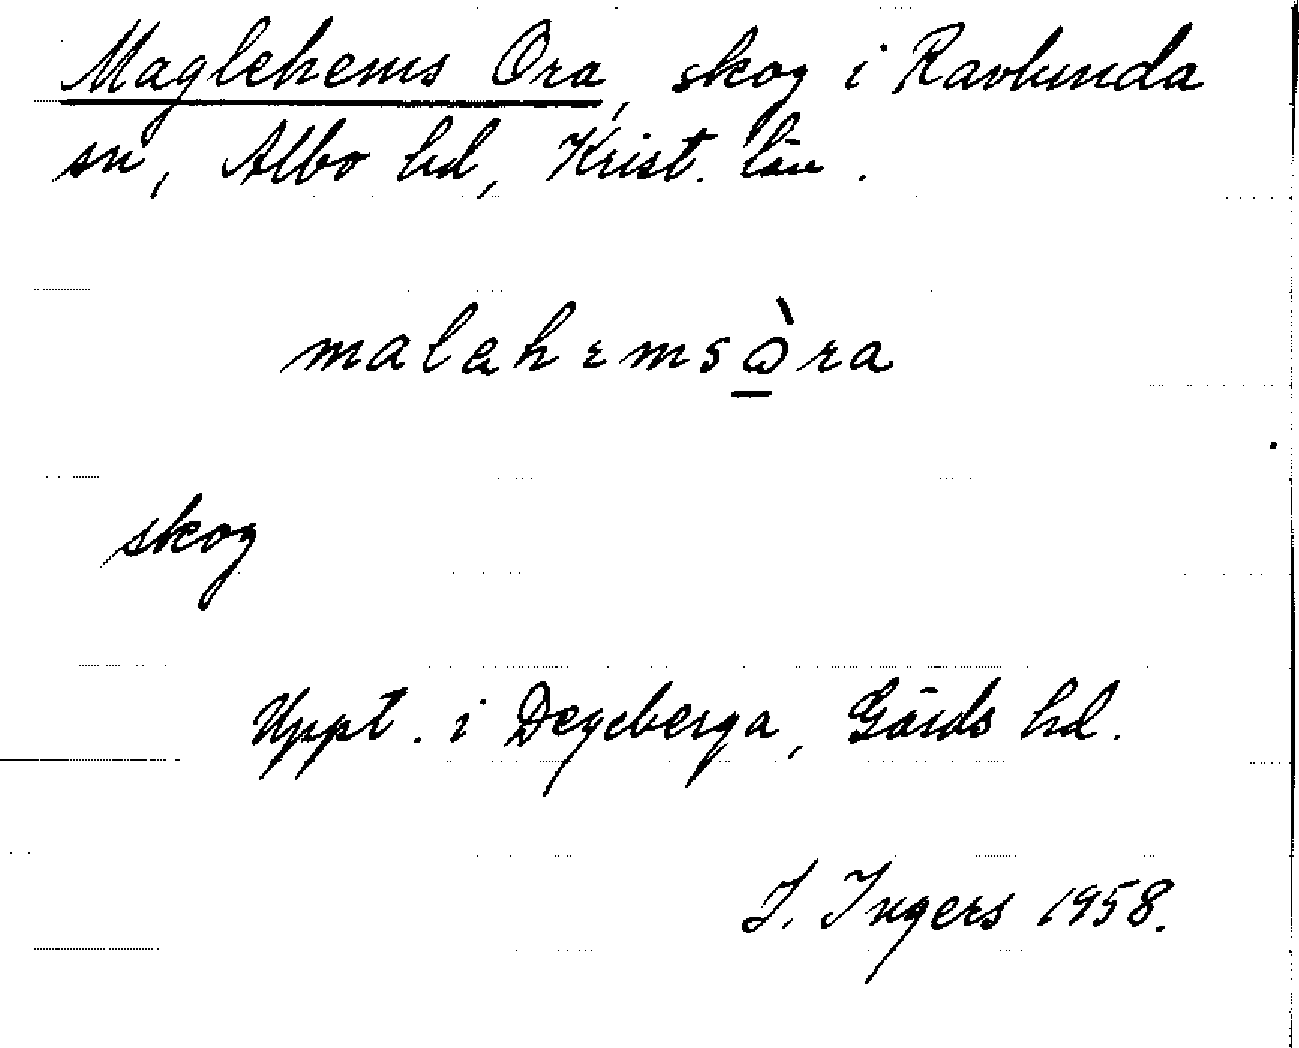 Maglehems Ora, skog i Ravlunda
sn, Albo hd, Krist. län.
malehɛmsòra
skog
Uppt. i Degeberga, Gärds hd.
I. Ingers 1958.